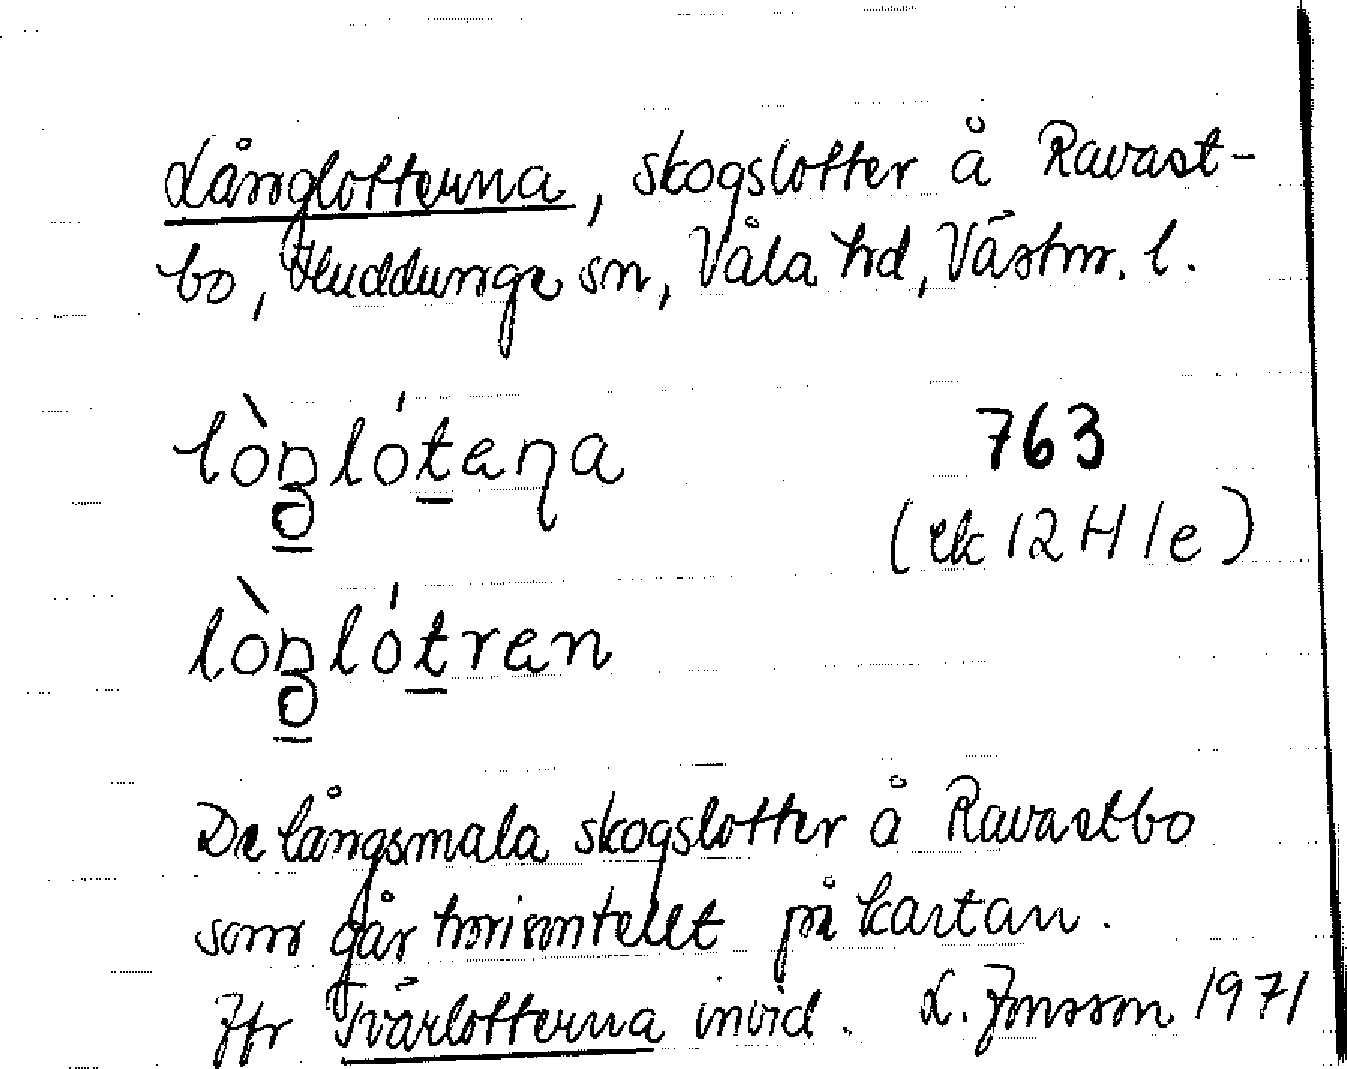 Långlotterna, skogslotter å Ravast-
bo, Huddunge sn, Våla hd, Västm. l.
763
(ek 12 H 1e)
De långsmala skogslotter å Ravastbo
som går horisontellt på kartan.
Jfr Tvärlotterna invid. L. Jonsson 1971